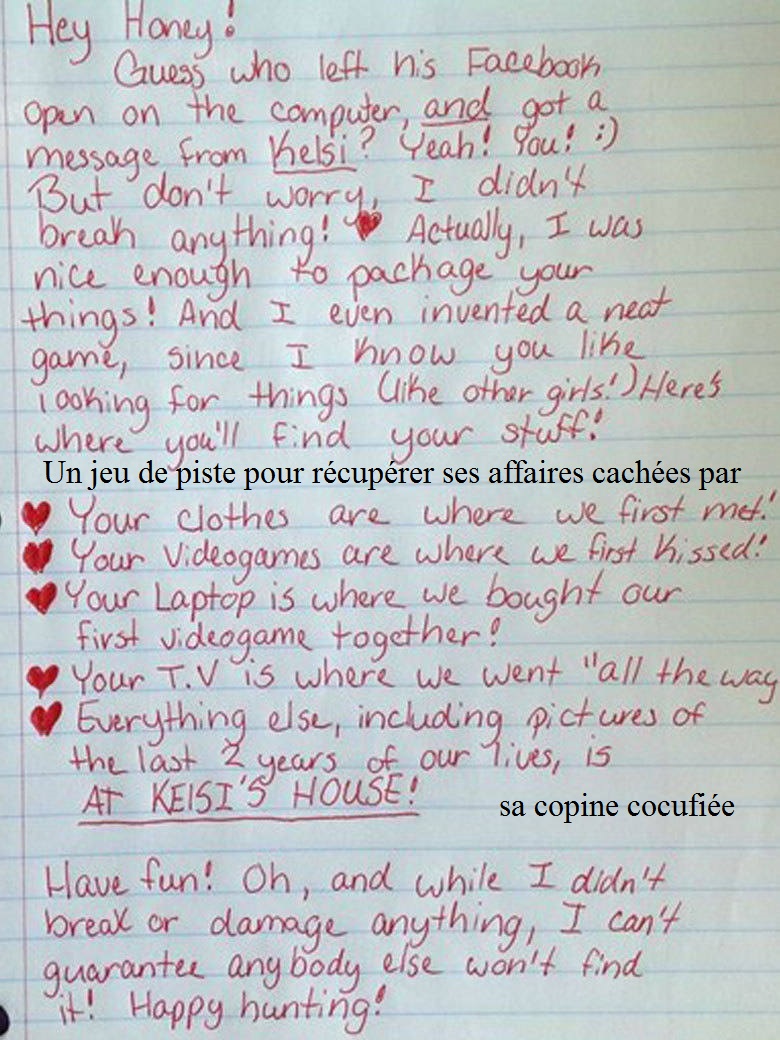 Hey Honey!
Guess who left his Facebook
open on the computer, and got a
message from Kelsi? Yeah! You! :)
But don't worry, I didn't
break anything! ♥ Actually, I was
nice enough to package your
things! And I even invented a neat
game, since I know you like
looking for things (like other girls!) Here's
where you'll find your stuff!
Un jeu de piste pour récupérer ses affaires cachées par
♥ Your clothes are where we first met!
♥ Your Videogames are where we first kissed!
♥ Your Laptop is where we bought our
first videogame together!
♥ Your T.V is where we went "all the way
♥ Everything else, including pictures of
the last 2 years of our lives, is
AT KElSI'S HOUSE!
sa copine cocufiée
Have fun! Oh, and while I didn't
break or damage anything, I can't
guarantee anybody else won't find
it! Happy hunting!